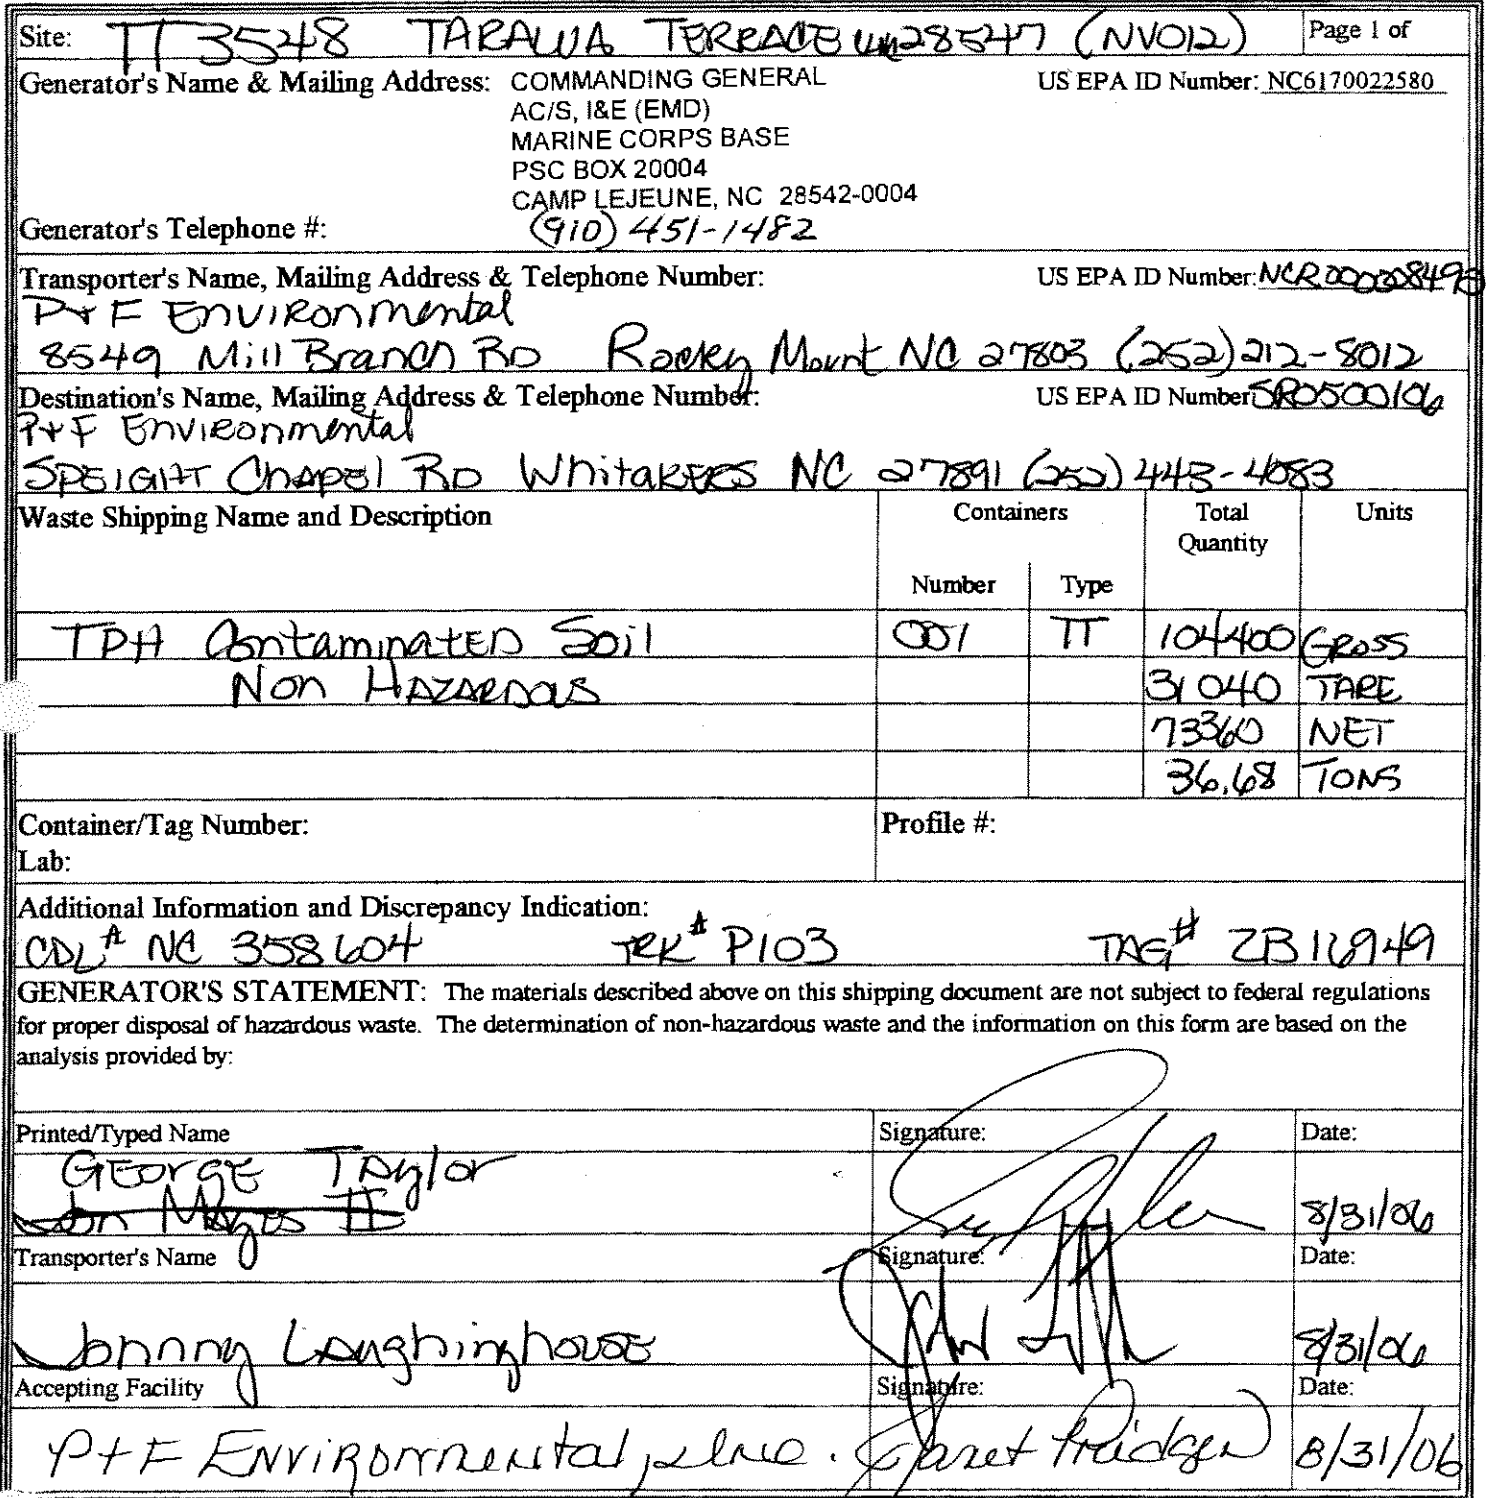 Site: TT 3548 TARAWA TERRACE 28547 (NV012) Page 1 of
Generator's Name & Mailing Address: COMMANDING GENERAL US EPA ID Number: NC6170022580
AC/S, I&E (EMD)
MARINE CORPS BASE
PSC BOX 20004
CAMP LEJEUNE, NC 28542-0004
Generator's Telephone #: (910) 451-1482
Transporter's Name, Mailing Address & Telephone Number: US EPA ID Number:
P+F Environmental
8549 Mill Branch RD Rocky Mount NC 27803 (252) 212-8012
Destination's Name, Mailing Address & Telephone Number: US EPA ID Number SR0500106
P+F Environmental
SPEIGHT Chapel RD Whitakers NC 27891 (252) 443-4083
Waste Shipping Name and Description Containers Total Quantity Units
Number Type
TPH Contaminated Soil 001 TT 104400 GROSS
Non HAZARDOUS 31040 TARE
73360 NET
36.68 TONS
Container/Tag Number: Profile #:
Lab:
Additional Information and Discrepancy Indication:
CDL# NC 358604 TRK# P103 TAG# ZB16949
GENERATOR'S STATEMENT: The materials described above on this shipping document are not subject to federal regulations
for proper disposal of hazardous waste. The determination of non-hazardous waste and the information on this form are based on the
analysis provided by:
Printed/Typed Name Signature: Date:
George Taylor
Jon Mayos II 8/31/06
Transporter's Name Signature: Date:
Johnny Laughinghouse 8/31/06
Accepting Facility Signature: Date:
P+F Environmental, Inc. Janet Pridgen 8/31/06